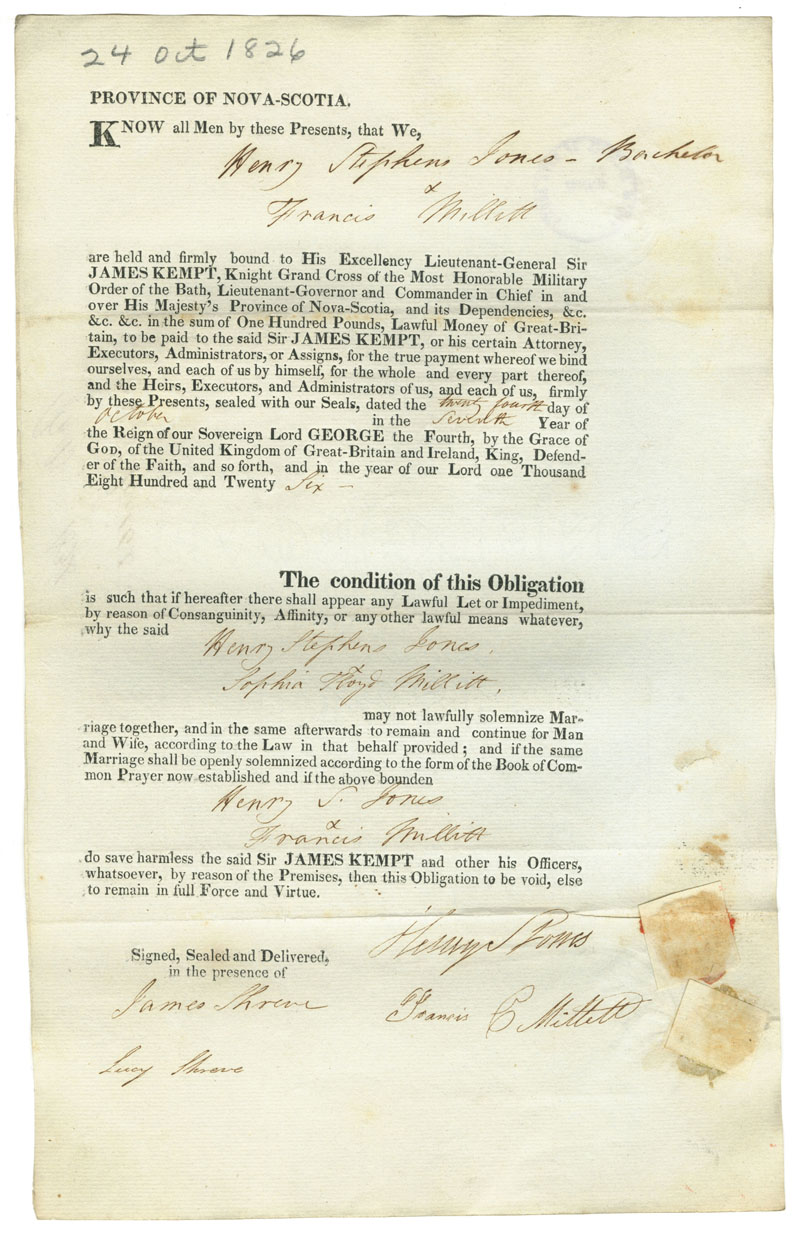 24 Oct 1826
PROVINCE OF NOVA-SCOTIA.
KNOW all Men by these Presents, that We,
Henry Stephens Jones - Bachelor
&
Francis Millett
are held and firmly bound to His Excellency Lieutenant-General Sir
JAMES KEMPT, Knight Grand Cross of the Most Honorable Military
Order of the Bath, Lieutenant-Governor and Commander in Chief in and
over His Majesty's Province of Nova-Scotia, and its Dependencies, &c.
&c. &c. in the sum of One Hundred Pounds, Lawful Money of Great-Bri-
tain, to be paid to the said Sir JAMES KEMPT, or his certain Attorney,
Executors, Administrators, or Assigns, for the true payment whereof we bind
ourselves, and each of us by himself, for the whole and every part thereof,
and the Heirs, Executors, and Administrators of us, and each of us, firmly
by these Presents, sealed with our Seals, dated the twenty fourth day of
October in the Seventh Year of
the Reign of our Sovereign Lord GEORGE the Fourth, by the Grace of
GOD, of the United Kingdom of Great-Britain and Ireland, King, Defend-
er of the Faith, and so forth, and in the year of our Lord one Thousand
Eight Hundred and Twenty Six -
The condition of this Obligation
is such that if hereafter there shall appear any Lawful Let or Impediment,
by reason of Consanguinity, Affinity, or any other lawful means whatever,
why the said
Henry Stephens Jones.
&
Sophia Floyd Millitt.
may not lawfully solemnize Mar-
riage together, and in the same afterwards to remain and continue for Man
and Wife, according to the Law in that behalf provided; and if the same
Marriage shall be openly solemnized according to the form of the Book of Com-
mon Prayer now established and if the above bounden
Henry S. Jones
&
Francis Millitt
do save harmless the said Sir JAMES KEMPT and other his Officers,
whatsoever, by reason of the Premises, then this Obligation to be void, else
to remain in full Force and Virtue.
Henry S Jones
Signed, Sealed and Delivered,
in the presence of
James Shreve
Francis C Millett
Lucy Shreve